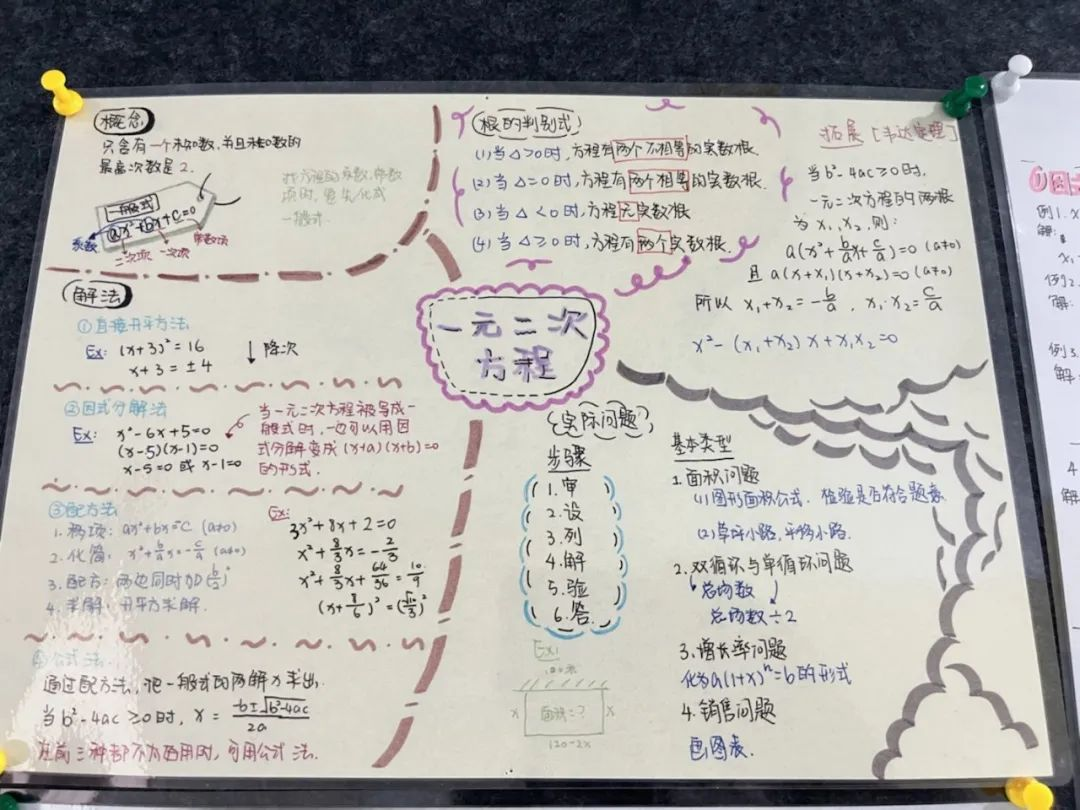 概念
只含有一个未知数,并且未知数的
最高次数是2.
一般式
ax²+bx+c=0
系数
二次项 一次项 常数项
找方程的系数,常数
项时,要先化成
一般式.
解法
①直接开平方法
Ex: (x+3)²=16
x+3=±4
↓降次
②因式分解法
Ex: x²-6x+5=0
(x-5)(x-1)=0
x-5=0 或 x-1=0
当一元二次方程被写成一
般式时,也可以用因
式分解变成(x+a)(x+b)=0
的形式.
③配方法
1.移项: ax²+bx=-C (a≠0)
2.化简: x²+b/a x=-c/a (a≠0)
3.配方:两边同时加(b/2)²
4.求解:开平方求解.
Ex:
3x²+8x+2=0
x²+8/3x=-2/3
x²+8/3x+64/36=10/9
(x+8/6)²=(√10/3)²
④公式法.
通过配方法,把一般式的两解为求出,
当b²-4ac≥0时, x=(-b±√b²-4ac)/2a
在前三种都不为适用时,可用公式法.
根的判别式
(1)当△>0时,方程有两个不相等的实数根.
(2)当△=0时,方程有两个相等的实数根.
(3)当△<0时,方程无实数根
(4)当△≥0时,方程有两个实数根.
拓展[韦达定理]
当b²-4ac≥0时,
一元二次方程的两根
为x₁、x₂,则:
a(x²+b/a x+c/a)=0 (a≠0)
且 a(x+x₁)(x+x₂)=0 (a≠0)
所以 x₁+x₂=-b/a, x₁·x₂=c/a
x²-(x₁+x₂)x+x₁x₂=0
一元二次
方程
实际问题
步骤
1.审
2.设
3.列
4.解
5.验
6.答.
Ex:
120米
x 面积=? x
120-2x
基本类型
1.面积问题
(1)图形面积公式.检验是否符合题意
(2)草坪小路,平移小路.
2.双循环与单循环问题
总场数
总场数÷2
3.增长率问题
化为a(1+x)ⁿ=b的形式
4.销售问题
画图表.
例1.
解:
例2.
解:
例3.
解:
4
解